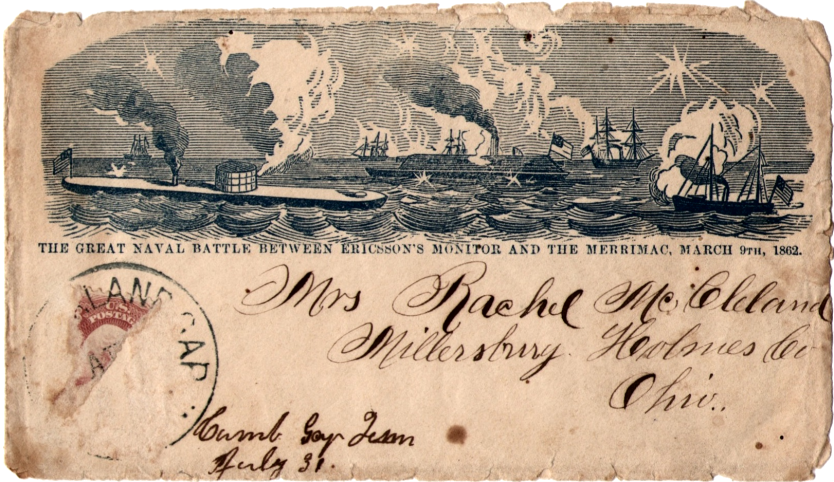 THE GREAT NAVAL BATTLE BETWEEN ERICSSON'S MONITOR AND THE MERRIMAC, MARCH 9TH, 1862.
Mrs Rachel McCleland
Millersburg Holmes Co
Ohio.
LAND GAP
U.S.
POSTAG
Cumb Gap Tenn
July 31.